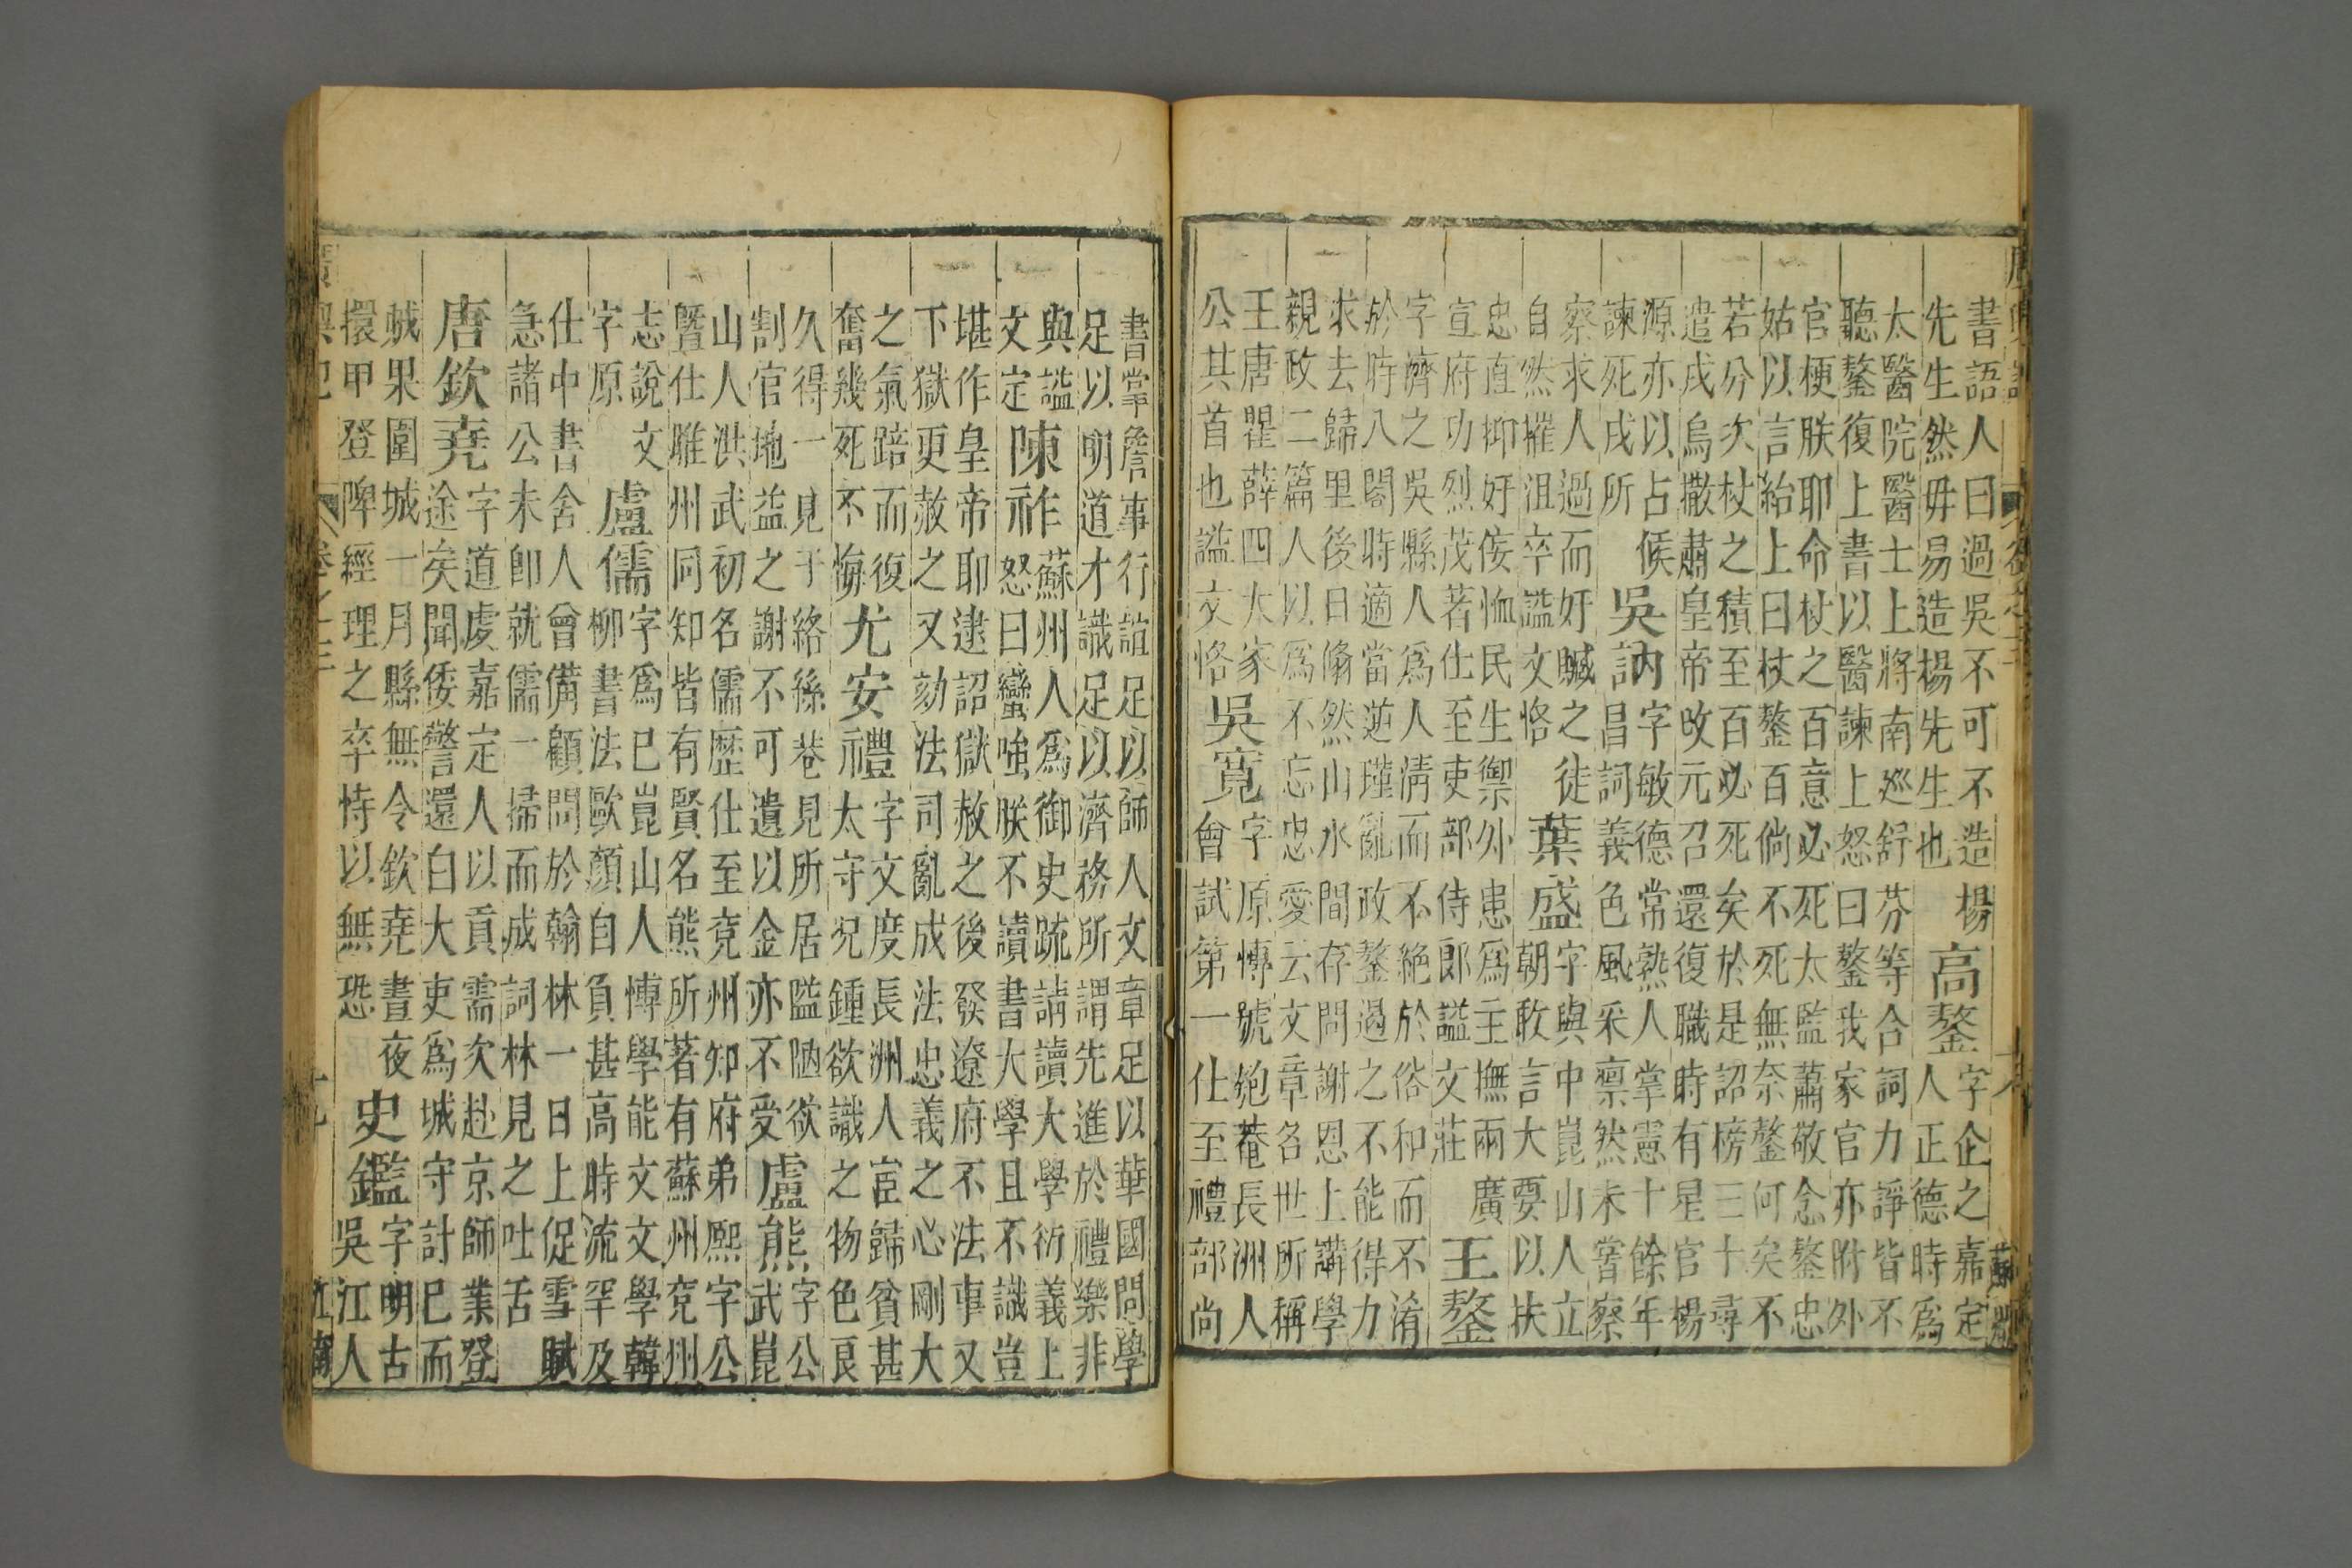 書語人曰過吳不可不造楊
先生然毋易造楊先生也
高鏊
字企之嘉定
人正德時爲
太醫院醫士上將南巡舒芬等合詞力諍皆不
聽鏊復上書以醫諫上怒曰鏊我家官亦附外
官梗朕耶命杖之百意必死太監蕭敬念鏊忠
姑以言紿上曰杖鏊百倘不死無奈鏊何矣不
若分次杖之積至百必死矣於是詔榜三十尋
遣戍烏撒肅皇帝改元召還復職時有星官楊
源亦以占候
諫死戍所
吳訥
字敏德常熟人掌憲十餘年
昌詞義色風采稟然未嘗察
察求人過而奸贓之徒
自然摧沮卒謚文恪
葉盛
字與中崑山人立
朝敢言大要以扶
忠直抑奸侫恤民生禦外患爲主撫兩廣
宣府功烈茂著仕至吏部侍郎謚文莊
王鏊
字濟之吳縣人爲人清而不絶於俗和而不淆
於時八閣時適當逆瑾亂政鏊過之不能得力
求去歸里後日翛然山水間存問謝恩上講學
親政二篇人以爲不忘忠愛云文章名世所稱
王唐瞿薛四大家
公其首也謚文恪
吳寛
字原博號匏菴長洲人
會試第一仕至禮部尚
書掌詹事行誼足以師人文章足以華國問學
足以明道才識足以濟務所謂先進於禮樂非
與謚
文定
陳祚
蘇州人爲御史疏請讀大學衍義上
怒曰蠻強朕不讀書大學且不識豈
堪作皇帝耶逮詔獄赦之後發遼府不法事又
下獄更赦之又劾法司亂成法忠義之心剛大
之氣踣而復
奮幾死不悔
尤安禮
字文度長洲人宦歸貧甚
太守况鍾欲識之物色良
久得一見于絡絲巷見所居隘陋欲
割官地益之謝不可遺以金亦不受
盧熊
字公
武崑
山人洪武初名儒歷仕至兗州知府弟熙字公
暨仕睢州同知皆有賢名熊所著有蘇州兗州
志說文
字原
盧儒
字爲已崑山人博學能文文學韓
柳書法歐顔自負甚高時流罕及
仕中書舍人曾備顧問於翰林一日上促雪賦
急諸公未即就儒一掃而成詞林見之吐舌
唐欽堯
字道虔嘉定人以貢需次赴京師業登
途矣聞倭警還白大吏爲城守計已而
賊果圍城一月縣無令欽堯晝夜
擐甲登陴經理之卒恃以無恐
史鑑
字明古
吳江人